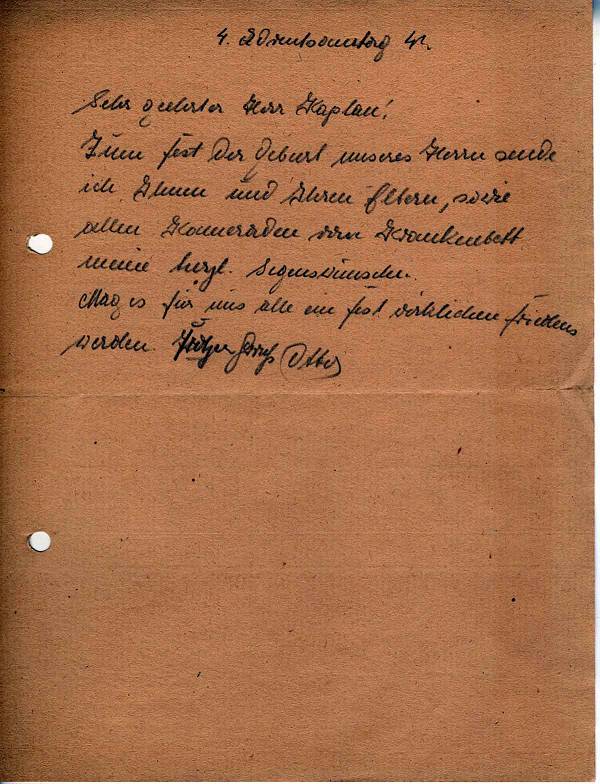 4. Adventsonntag 42.
Sehr geehrter Herr Kaplan!
Zum Fest der Geburt unseres Herrn sende
ich Ihnen und Ihren Eltern, sowie
allen Kameraden vom Krankenbett
meine herzl. Segenswünsche.
Mag es für uns alle ein Fest wirklichen Friedens
werden. Otto